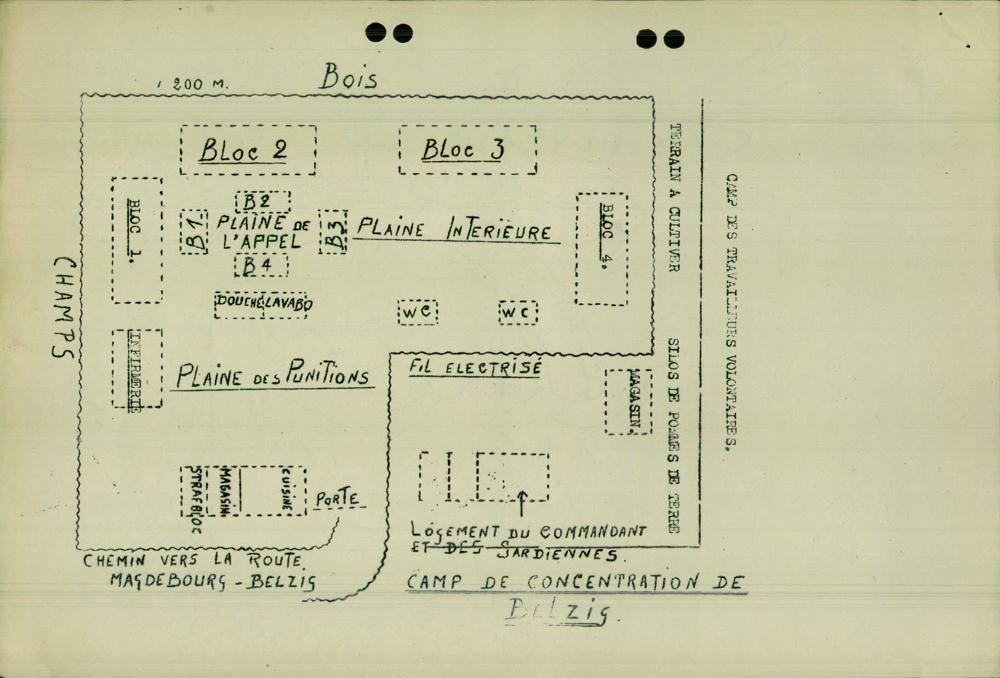 200 M.
BOIS
BLOC 2
BLOC 3
BLOC 1.
B2
B1
PLAINE DE
L'APPEL
B3
PLAINE INTERIEURE
BLOC 4.
B4
DOUCHE LAVABO
WC
WC
CHAMPS
INFIRMERIE
PLAINE DES PUNITIONS
FIL ELECTRISÉ
MAGASIN.
TERRAIN A CULTIVER
SILOS DE POMMES DE TERRE
CAMP DES TRAVAILLEURS VOLONTAIRES.
STRAFBLOC
MAGASIN
CUISINE
PORTE
LOGEMENT DU COMMANDANT
ET DES GARDIENNES.
CHEMIN VERS LA ROUTE
MAGDEBOURG - BELZIG
CAMP DE CONCENTRATION DE
BELZIG.